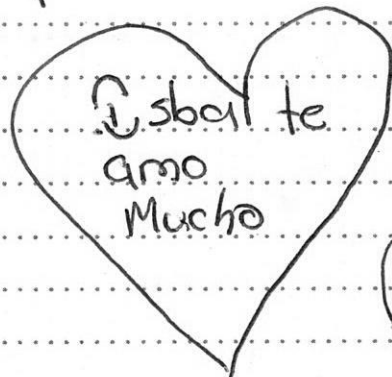 Isbal te
amo
Mucho